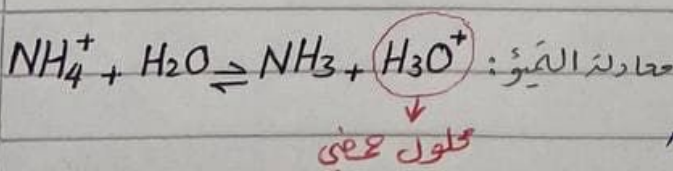 معادلة التميؤ: NH₄⁺ + H₂O ⇌ NH₃ + H₃O⁺
↓
محلول حمضي